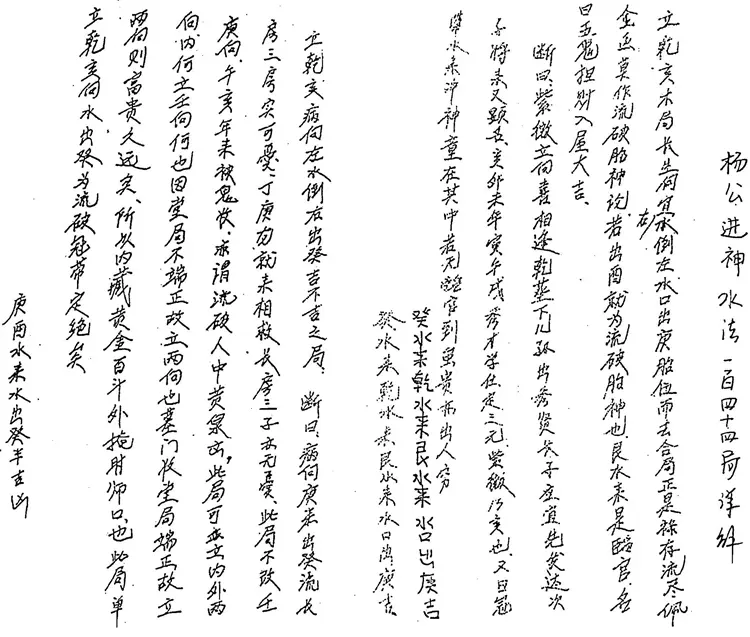 杨公进神水法一百四十四局详解
立乾亥木局长生向宜右水倒左水口出庚胎位而去合局正是禄存流尽佩
金鱼莫作流破胎神论若出酉就为流破胎神也艮水来是临官名
曰五鬼担财入屋大吉
断曰紫微立向喜相逢乾亥下儿孙出秀贤长子应宜先发达次
子将来又显吾亥卯未年寅午戌秀才学仕定三元紫微乃亥也又曰冠
带水来冲神童在其中若无临官到虽贵亦出人穷
癸水来乾水来艮水来水口出庚吉
癸水来乾水来艮水来水口出庚吉
立乾亥病向左水倒右出癸吉不吉之局断曰病向庚来出癸流长
房三房实可忧丁庚勿就来相救长房三子亦无忧此局不改壬
庚向午亥年来被鬼收亦谓流破人中黄泉出此局可亚立内外两
向内何立壬向何也因堂局不端正故立两向也墓门收堂局端正故立
两向则富贵久远矣所以内藏黄金百斗外掩肘师口也此局单
立乾亥向水出癸为流破冠带定绝矣
庚酉水来水出癸半吉凶